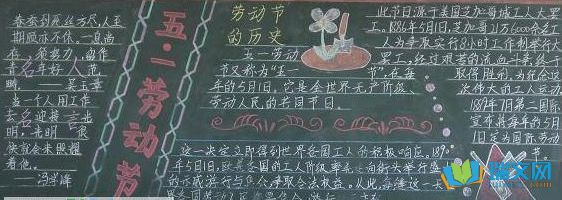 春蚕到死丝方尽，人至
期颐亦不休。一息尚
存须努力，留作
青年好人范
——吴玉章
当一个人用工作
去迎接
明，光明
快就会来照耀
着他。
——冯雪峰
五·一劳动节
劳动节
的历史
五一劳动
节又称为"五一
节"，在每
年的5月1日。它是全世界无产阶级、
劳动人民的共同节日。
此节日源于美国芝加哥城工人大罢
工。1886年5月1日，芝加哥216000余名工
人为争取实行8小时工作制举行大
罢工，经过艰苦的流血斗争，终于
取得胜利，为纪念这
次伟大的工人运动，
1889年7月第二国际
宣布将每年的5月
1日定为国际劳动
节。
这一决定立即得到世界各国工人的积极响应。1890
年5月1日，欧美各国的工人阶级率先走向街头，举行盛大
的示威游行与集会，争取合法权益。从此，每逢这一天
瑞文网